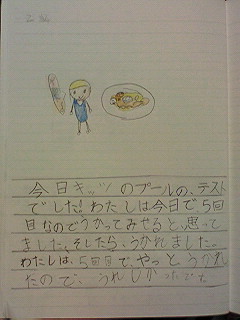 今日キッツのプールの、テスト
でした！わたしは今日で5回
目なのでうかってみせると、思って
ました。そしたら、うかれました。
わたしは、5回目で、やっとうかれ
たので、うれしかったです